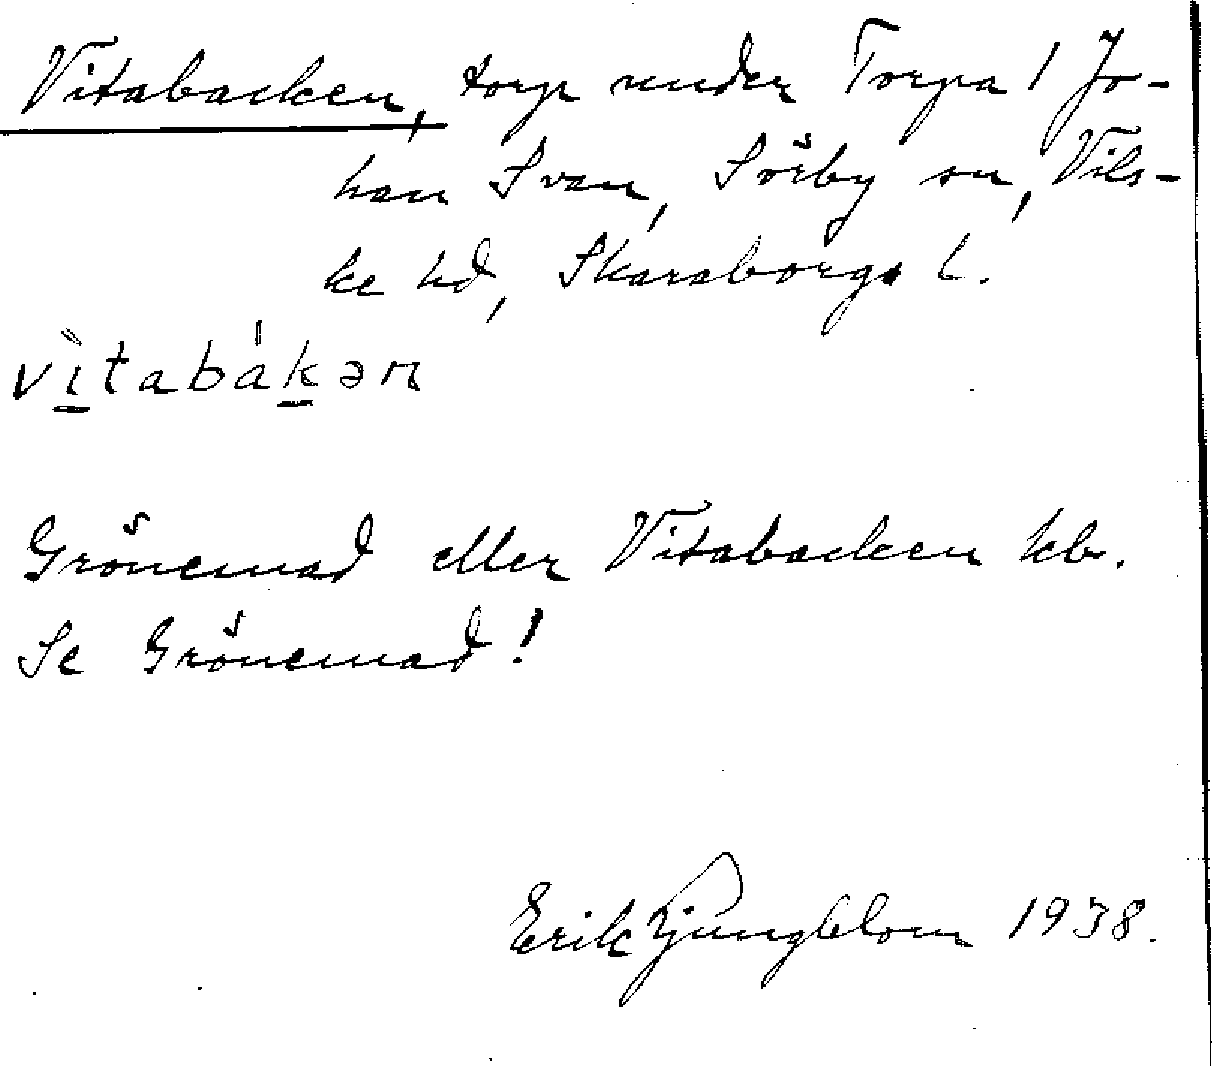 Vitabacken, torp under Torpa 1 Jo-
han Svan, Sörby sn, Vils-
ke hd, Skaraborgs l.
vìtabákən
Grönemad eller Vitabacken kb.
Se Grönemad!
Erik Ljungblom 1938.